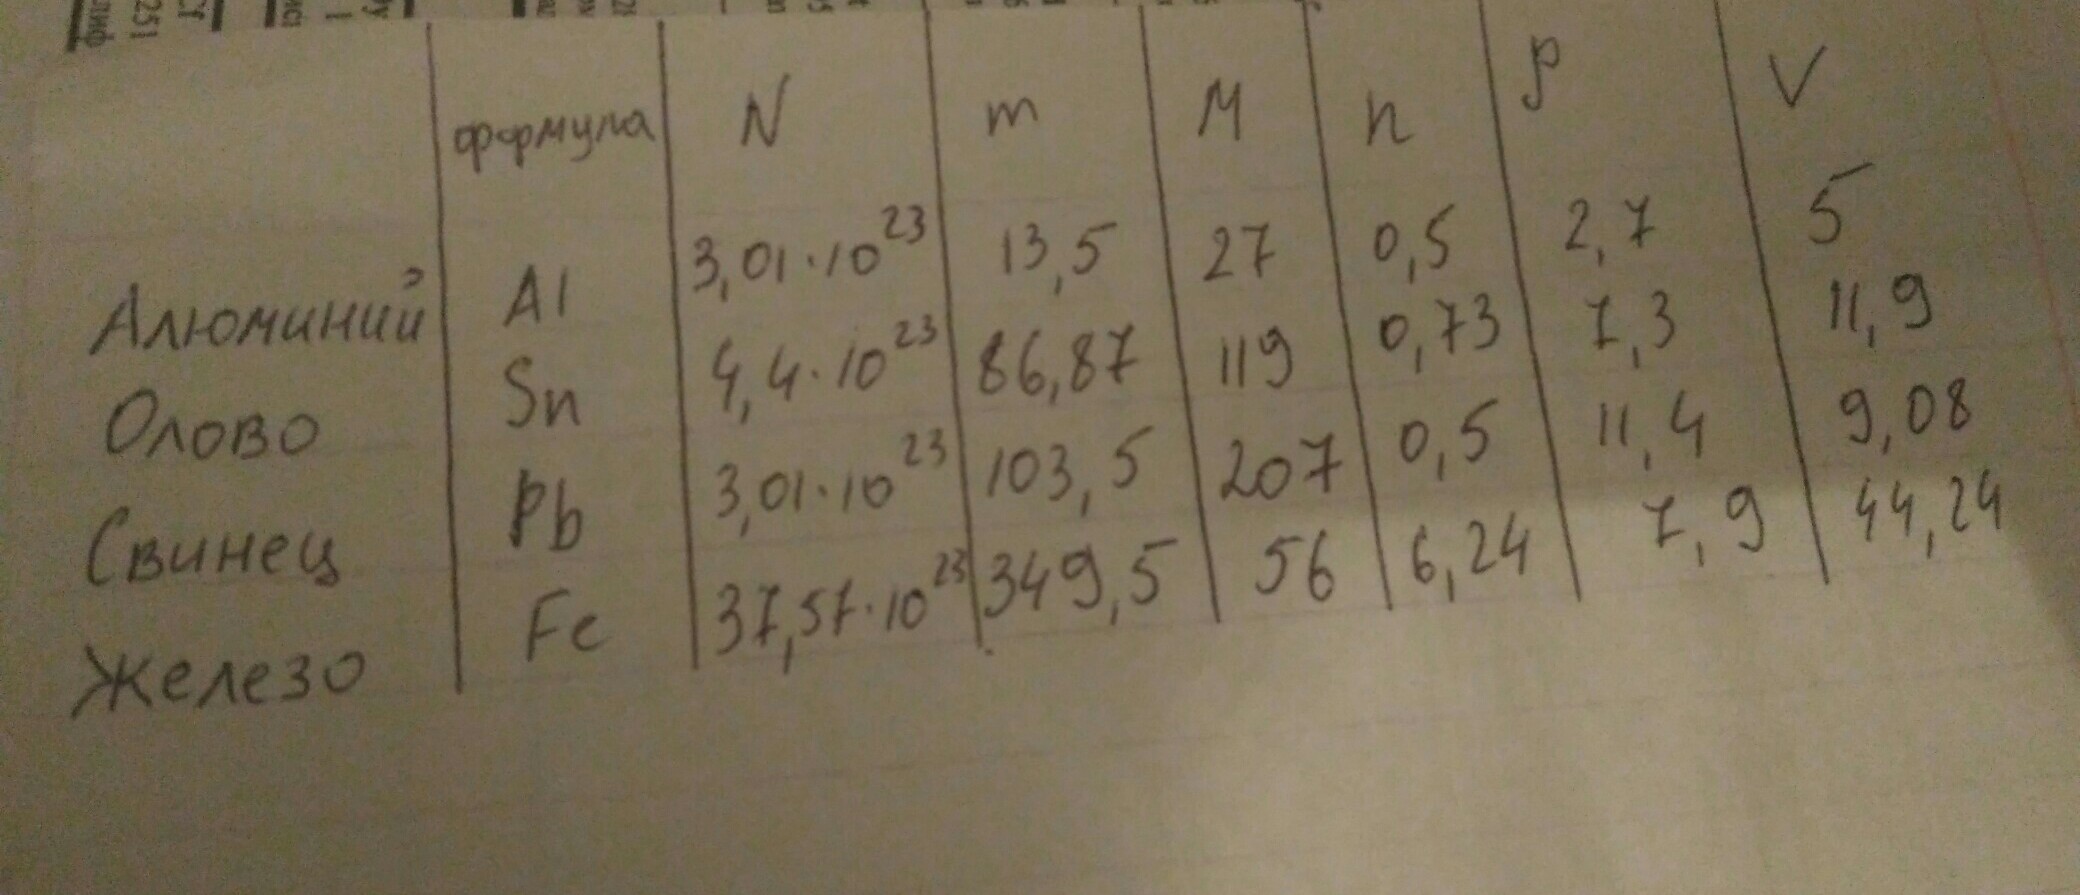 формула N m M n ρ V
Алюминий Al 3,01·10²³ 13,5 27 0,5 2,7 5
Олово Sn 4,4·10²³ 86,87 119 0,73 7,3 11,9
Свинец Pb 3,01·10²³ 103,5 207 0,5 11,4 9,08
Железо Fe 37,57·10²³ 349,5 56 6,24 7,9 44,24